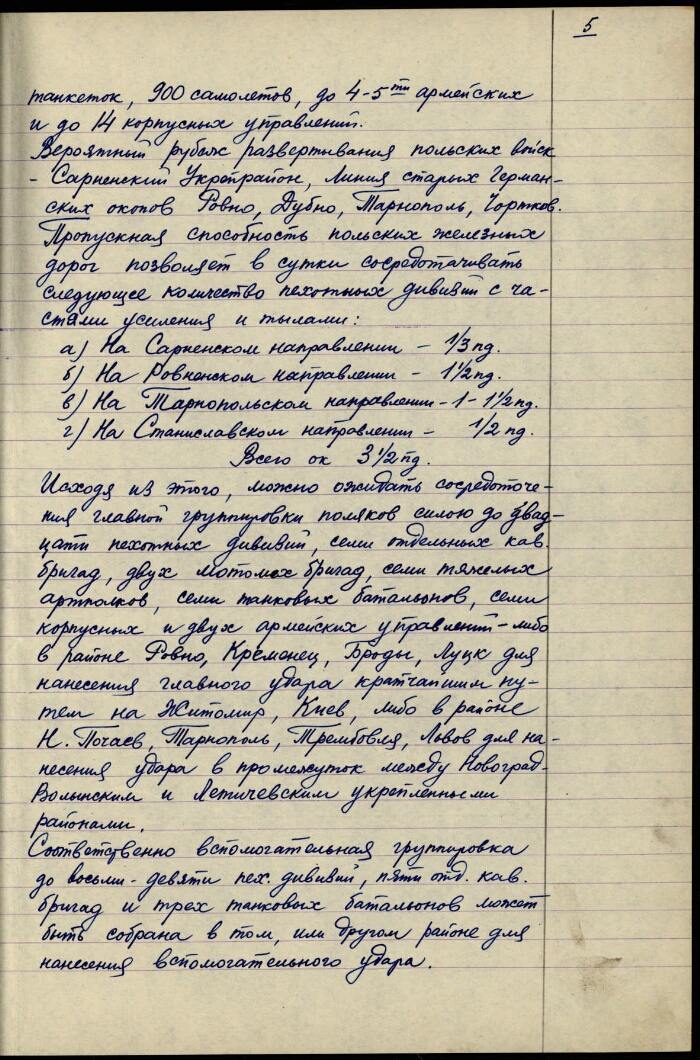 5
танкеток, 900 самолетов, до 4-5ти армейских
и до 14 корпусных управлений.
Вероятный рубеж развертывания польских войск
- Сарненский Укрепрайон, Линия старых Герман-
ских окопов Ровно, Дубно, Тарнополь, Чортков.
Пропускная способность польских железных
дорог позволяет в сутки сосредотачивать
следующее количество пехотных дивизий с ча-
стями усиления и тылами:
а) На Сарненском направлении - 1/3 пд.
б) На Ровненском направлении - 1 1/2 пд.
в) На Тарнопольском направлении - 1 - 1 1/2 пд.
г) На Станиславском направлении - 1/2 пд.
Всего ок 3 1/2 пд.
Исходя из этого, можно ожидать сосредоточе-
ния главной группировки поляков силою до двад-
цати пехотных дивизий, семи отдельных кав.
бригад, двух мотомех бригад, семи тяжелых
артполков, семи танковых батальонов, семи
корпусных и двух армейских управлений - либо
в районе Ровно, Кременец, Броды, Луцк для
нанесения главного удара кратчайшим пу-
тем на Житомир, Киев, либо в районе
Н. Почаев, Тарнополь, Трембовля, Львов для на-
несения удара в промежуток между Новоград-
Волынским и Летичевским укрепленными
районами.
Соответственно вспомогательная группировка
до восьми - девяти пех. дивизий, пяти отд. кав.
бригад и трех танковых батальонов может
быть собрана в том, или другом районе для
нанесения вспомогательного удара.